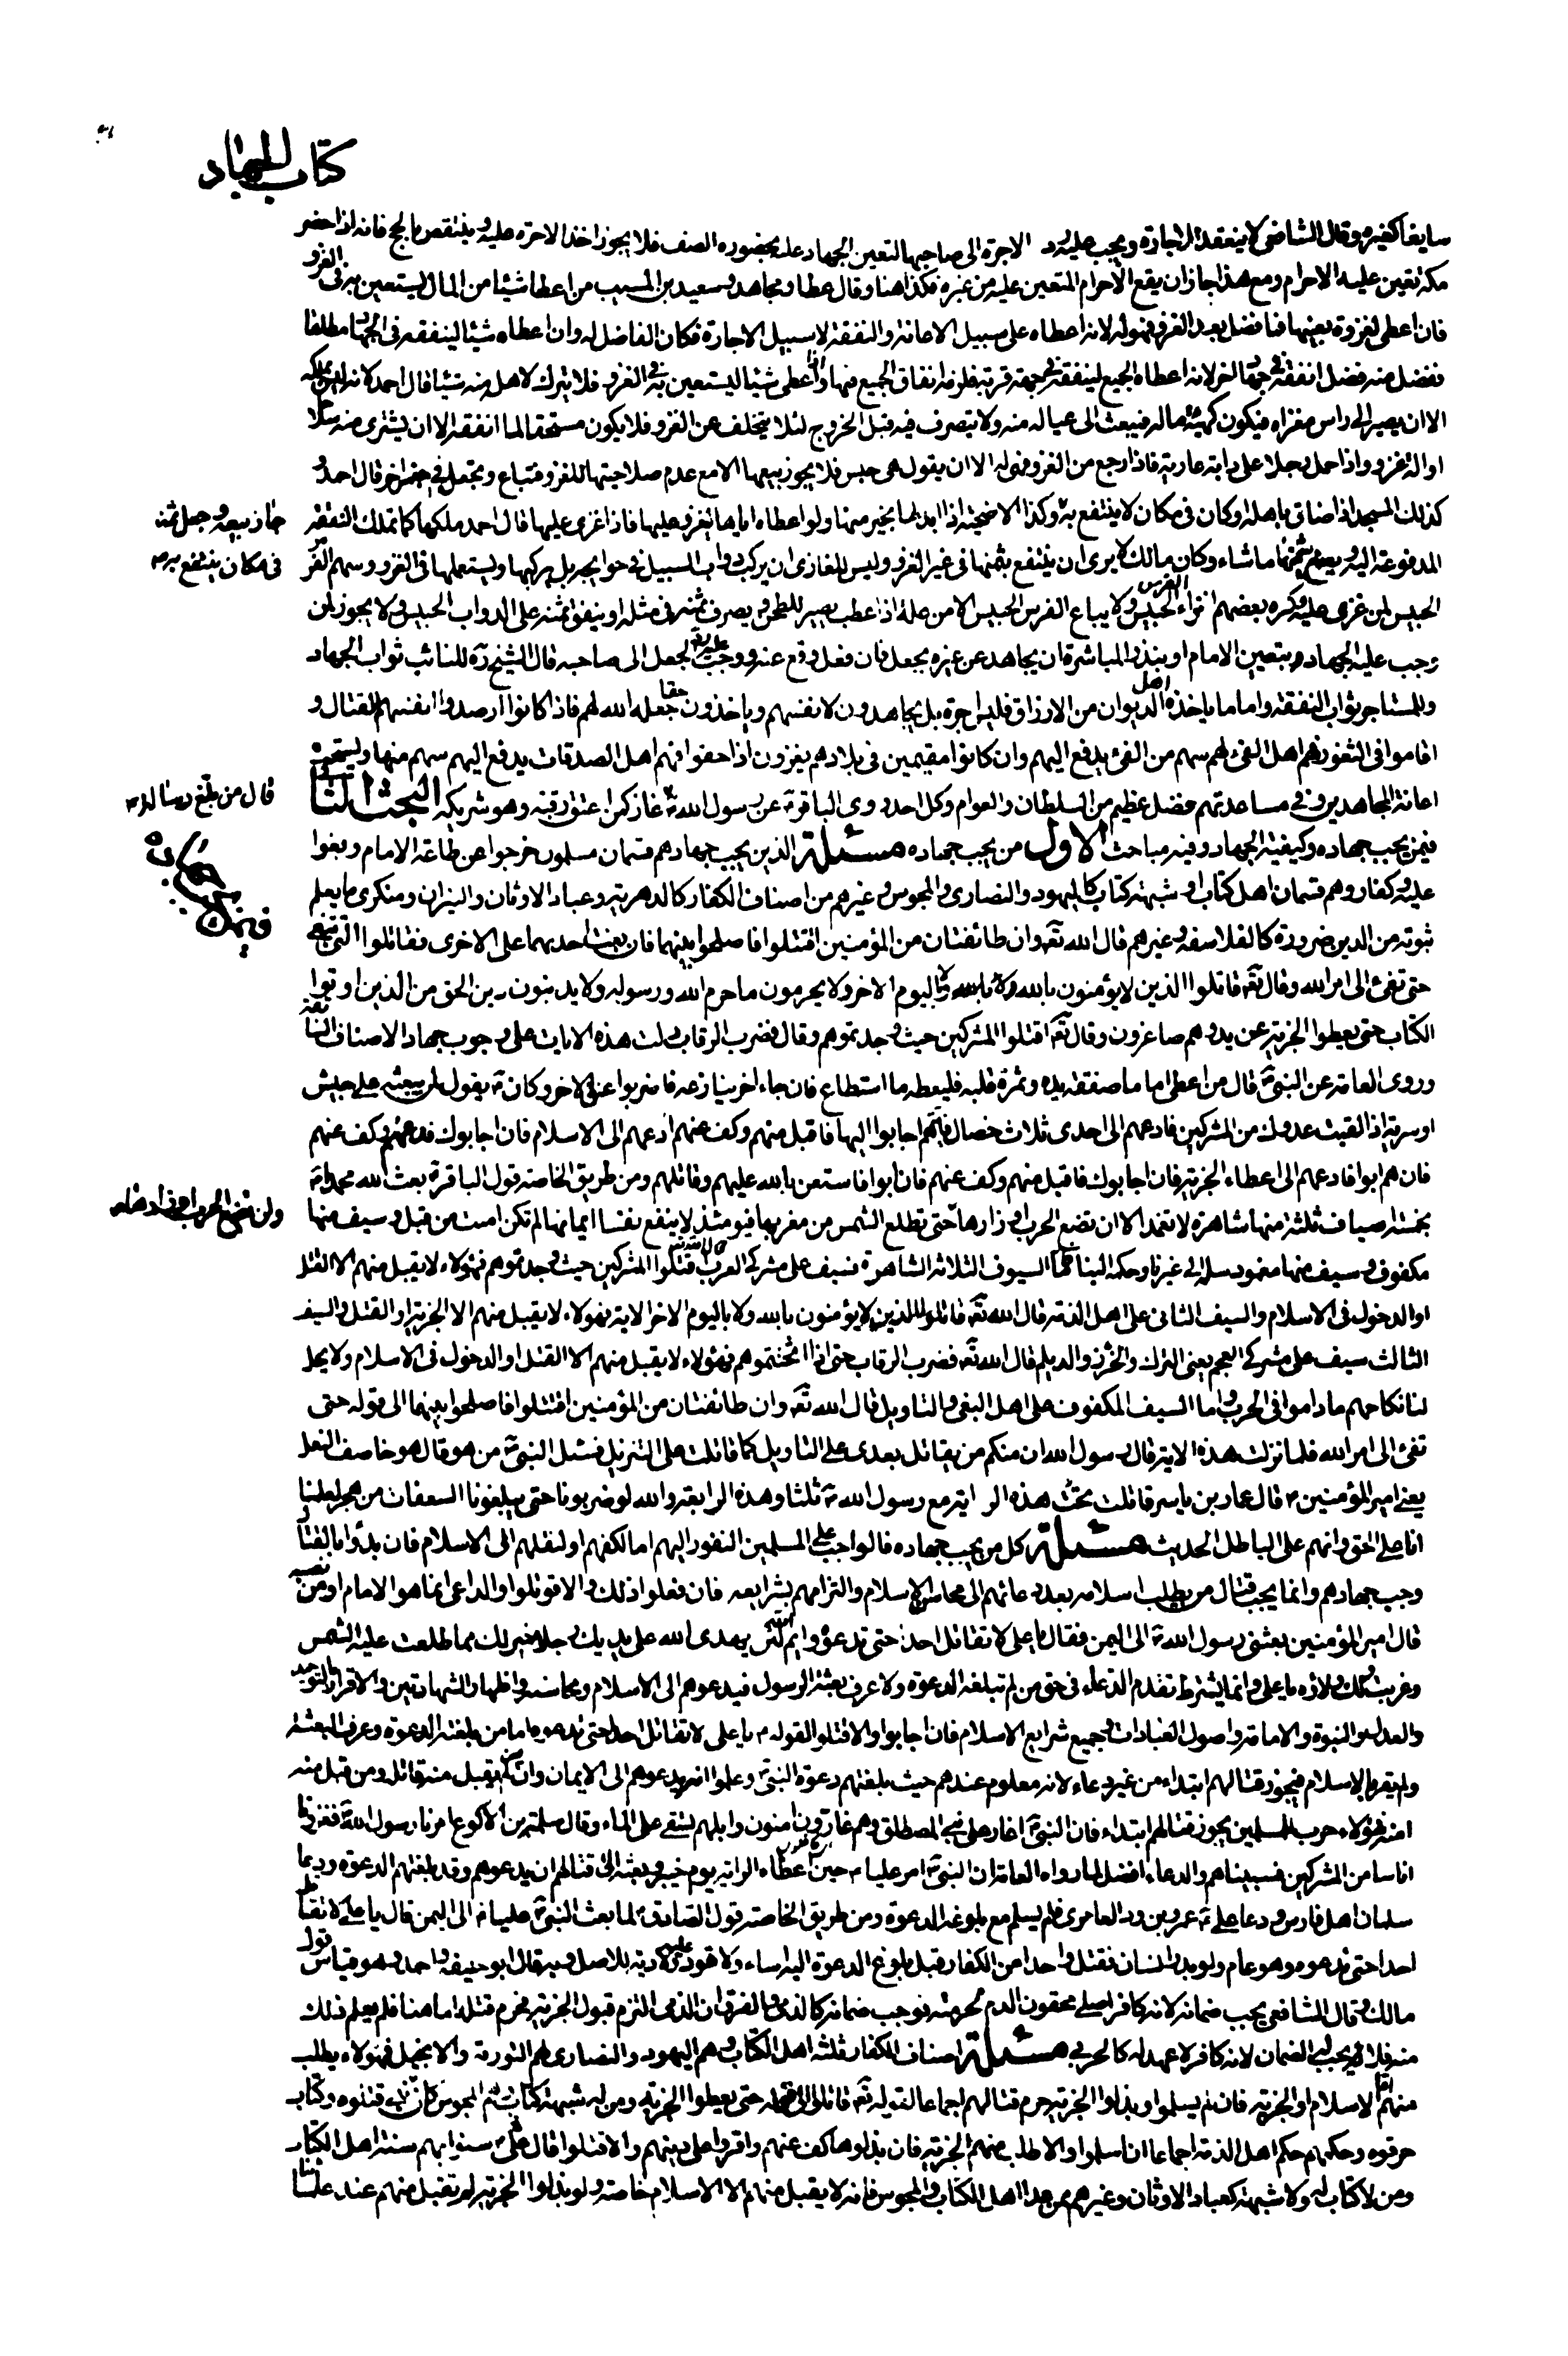 كتاب الجهاد
سايغا كغيره وقال الشافعى لا ينعقد الاجارة ويجب عليه رد الاجرة الى صاحبها لتعين الجهاد عليه بحضوره الصف فلا يجوز اخذ الاجرة عليه وينتقض بالحج فانه اذا حضر
مكة تعين عليه الاحرام ومع هذا جاز ان يقع الاحرام المتعين عليه من غيره فكذا هنا وقال عطا ومجاهد وسعيد بن المسيب من اعطا شيئا من المال يستعين به فى الغزو
فان اعطى لغزوة بعينها فما فضل بعد الغزو فهو له لانه اعطاه على سبيل الاعانة والنفقة لا سبيل الاجارة فكان الفاضل له وان اعطاه شيئا لينفقه فى الجهاد مطلقا
ففضل منه فضل انفقه فى جهة اخر لانه اعطاه الجميع لينفقه فى جهة قربة فلزمه انفاق الجميع فيها واذا اعطى شيئا ليستعين به فى الغزو فلا يترك لاهله منه شيئا قال احمد لانه ليس يملكه
الا ان يصير الى راس مغزاه فيكون كهيئة ماله فيبعث الى عياله منه ولا يتصرف فيه قبل الخروج لئلا يتخلف عن الغزو فلا يكون مستحقا لما انفقه الا ان يشترى منه سلاحا
او الة غزو واذا حمل رجلا على دابة عارية فاذا رجع من الغزو فهى له الا ان يقول هى حبس فلا يجوز بيعها الا مع عدم صلاحيتها للغزو فتباع وتجعل فى حبس اخر قال احمد و
كذلك المسجد اذا ضاق باهله وكان فى مكان لا ينتفع به وكذا الاضحية اذا ابدلها بخير منها ولو اعطاه اياها ليغزو عليها فاذا غزى عليها قال احمد ملكها كما تملك النفقة
جاز بيعه وجعل ثمنه
فى مكان ينتفع به صح
المدفوعة اليه ويصنع بثمنها ما شاء وكان مالك لا يرى ان ينتفع بثمنها فى غير الغزو وليس للغازى ان يركب دواب السبيل فى حوايجه بل يركبها ويستعملها فى الغزو وسهم الفرس
الحبيس لمن غزى عليه وكره بعضهم انزاء الفرس الحبيس ولا يباع الفرس الحبيس الا من علة اذا عطب يصير للطحن ويصرف ثمنه فى مثله او ينفق ثمنه على الدواب الحبيس ولا يجوز لمن
وجب عليه الجهاد بتعيين الامام او بنذر المباشرة ان يجاهد عن غيره بجعل فان فعل وقع عنه ووجب عليه رد الجعل الى صاحبه قال الشيخ ره للنائب ثواب الجهاد
وللمستاجر ثواب النفقة واما ما ياخذه اهل الديوان من الارزاق فليس اجرة بل يجاهدون لانفسهم وياخذون حقا جعله الله لهم فاذا كانوا ارصدوا انفسهم للقتال و
اقاموا فى الثغور فهم اهل الفئ لهم سهم من الفئ يدفع اليهم وان كانوا مقيمين فى بلادهم يغزون اذا خفوا فهم اهل الصدقات يدفع اليهم سهم منها ويستحب
اعانة المجاهدين وفى مساعدتهم فضل عظيم من السلطان والعوام وكل احد روى الباقر ع عن رسول الله ص غاز كمن اعتق رقبة وهو شريكه البحث الثانى
قال من بلغ رسالة
فيمن يجب جهاده وكيفية الجهاد وفيه مباحث الاول من يجب جهاده مسئلة الذين يجب جهادهم قسمان مسلمون خرجوا عن طاعة الامام وبغوا
فيمن يجب جهاده
عليه وكفار وهم قسمان اهل كتاب او شبهة كتاب كاليهود والنصارى والمجوس وغيرهم من اصناف الكفار كالدهرية وعباد الاوثان والنيران ومنكرى ما يعلم
ثبوته من الدين ضرورة كالفلاسفة وغيرهم قال الله تعه وان طائفتان من المؤمنين اقتتلوا فاصلحوا بينهما فان بغت احديهما على الاخرى فقاتلوا التى تبغى
حتى تفئ الى امر الله وقال تعه قاتلوا الذين لا يؤمنون بالله ولا باليوم الاخر ولا يحرمون ما حرم الله ورسوله ولا يدينون دين الحق من الذين اوتوا
الكتاب حتى يعطوا الجزية عن يد وهم صاغرون وقال تعه اقتلوا المشركين حيث وجدتموهم وقال فضرب الرقاب دلت هذه الايات على وجوب جهاد الاصناف السابقة
وروى العامة عن النبى ص قال من اعطى اماما صفقة يده وثمرة قلبه فليطعه ما استطاع فان جاء اخر ينازعه فاضربوا عنق الاخر وكان ص يقول لمن يبعثه على جيش
او سرية اذا لقيت عدوك من المشركين فادعهم الى احدى ثلاث خصال فايتهم اجابوا اليها فاقبل منهم وكف عنهم ادعهم الى الاسلام فان اجابوك فاقبل منهم وكف عنهم
فان هم ابوا فادعهم الى اعطاء الجزية فان اجابوك فاقبل منهم وكف عنهم فان ابوا فاستعن بالله عليهم وقاتلهم ومن طريق الخاصة قول الباقر ع بعث الله محمدا ص
بخمسة اسياف ثلثة منها شاهرة لا تغمد الا ان تضع الحرب اوزارها حتى تطلع الشمس من مغربها فيومئذ لا ينفع نفسا ايمانها لم تكن امنت من قبل وسيف منها
ولن تضع الحرب اوزارها
مكفوف وسيف منها مغمود سله الى غيرنا وحكمه الينا فاما السيوف الثلاثة الشاهرة فسيف على مشركى العرب قال الله تعه اقتلوا المشركين حيث وجدتموهم فهؤلاء لا يقبل منهم الا القتل
او الدخول فى الاسلام والسيف الثانى على اهل الذمة قال الله تعه قاتلوا الذين لا يؤمنون بالله ولا باليوم الاخر الاية فهؤلاء لا يقبل منهم الا الجزية او القتل والسيف
الثالث سيف على مشركى العجم يعنى الترك والخزر والديلم قال الله تعه فضرب الرقاب حتى اذا اثخنتموهم فهؤلاء لا يقبل منهم الا القتل او الدخول فى الاسلام ولا يحل
لنا نكاحهم ما داموا فى الحرب واما السيف المكفوف على اهل البغى والتاويل قال الله تعه وان طائفتان من المؤمنين اقتتلوا فاصلحوا بينهما الى قوله حتى
تفئ الى امر الله فلما نزلت هذه الاية قال رسول الله ان منكم من يقاتل بعدى على التاويل كما قاتلت على التنزيل فسئل النبى ص من هو قال هو خاصف النعل
يعنى امير المؤمنين ع قال عمار بن ياسر قاتلت تحت هذه الراية مع رسول الله ص ثلثا وهذه الرابعة والله لو ضربونا حتى يبلغونا السعفات من هجر لعلمنا
انا على الحق وانهم على الباطل الحديث مسئلة كل من يجب جهاده فالواجب على المسلمين النفور اليهم اما لكفهم او لنقلهم الى الاسلام فان بداوا بالقتال
وجب جهادهم وانما يجب قتال من يطلب اسلامه بعد دعائهم الى محاسن الاسلام والتزامهم بشرايعه فان فعلوا ذلك والا قوتلوا والداعى انما هو الامام او من نصبه
قال امير المؤمنين بعثنى رسول الله ص الى اليمن فقال يا على لا تقاتل احدا حتى تدعوه وايم الله لئن يهدى الله على يديك رجلا خير لك مما طلعت عليه الشمس
وغربت ولك ولاؤه يا على وانما يشترط تقدم الدعاء فى حق من لم تبلغه الدعوة ولا عرف بعثة الرسول فيدعوهم الى الاسلام ومحاسنه واظهار الشهادتين والاقرار بالتوحيد
والعدل والنبوة والامامة واصول العبادات وجميع شرايع الاسلام فان اجابوا والا قتلوا لقوله ع يا على لا تقاتل احدا حتى تدعوه اما من بلغته الدعوة وعرف البعثة
ولم يقر بالاسلام فيجوز قتالهم ابتداء من غير دعاء لانه معلوم عندهم حيث بلغتهم دعوة النبى ص وعلموا انه يدعوهم الى الايمان وان من لم يقبل منه قاتله ومن قبل منه
امنه فهؤلاء حرب للمسلمين يجوز قتالهم ابتداء فان النبى ص اغار على بنى المصطلق وهم غارون امنون وابلهم تسقى على الماء وقال سلمة بن الاكوع امرنا رسول الله ص فغزونا
اناسا من المشركين فسبيناهم والدعاء افضل لما رواه العامة ان النبى ص امر عليا ع حين اعطاه الراية يوم خيبر وبعثه الى قتالهم ان يدعوهم وقد بلغتهم الدعوة ودعا
سلمان اهل فارس ودعا على ع عمرو بن ود العامرى فلم يسلم مع بلوغه الدعوة ومن طريق الخاصة قول الصادق ع لما بعث النبى ص عليا ع الى اليمن قال يا على لا تقاتل
احدا حتى تدعوه وهو عام ولو بدر انسان فقتل واحدا من الكفار قبل بلوغ الدعوة اليه اساء ولا قود عليه ولا دية للاصل وبه قال ابو حنيفة واحمد وهو قياس قول
مالك وقال الشافعى يجب ضمانه لانه كافر اصلى محقون الدم لحرمته فوجب ضمانه كالذمى والفرق ان الذمى التزم قبول الجزية فحرم قتله اما هنا فلم يعلم ذلك
منه فلا يجب له الضمان لانه كافر لا عهد له كالحربى مسئلة اصناف الكفار ثلثة اهل الكتاب وهم اليهود والنصارى لهم التورية والانجيل فهؤلاء يطلب
منهم اما الاسلام او الجزية فان لم يسلموا وبذلوا الجزية حرم قتالهم اجماعا لقوله تعه قاتلوا الى قوله حتى يعطوا الجزية ومن له شبهة كتاب وهم المجوس كان لهم نبى قتلوه وكتاب
حرقوه وحكمهم حكم اهل الذمة اجماعا ان اسلموا والا طلب منهم الجزية فان بذلوها كف عنهم واقروا على دينهم والا قتلوا قال ع سنوا بهم سنة اهل الكتاب
ومن لا كتاب له ولا شبهة كعباد الاوثان وغيرهم ممن عدا اهل الكتاب والمجوس فانه لا يقبل منهم الا الاسلام خاصة ولو بذلوا الجزية لم تقبل منهم عند علمائنا